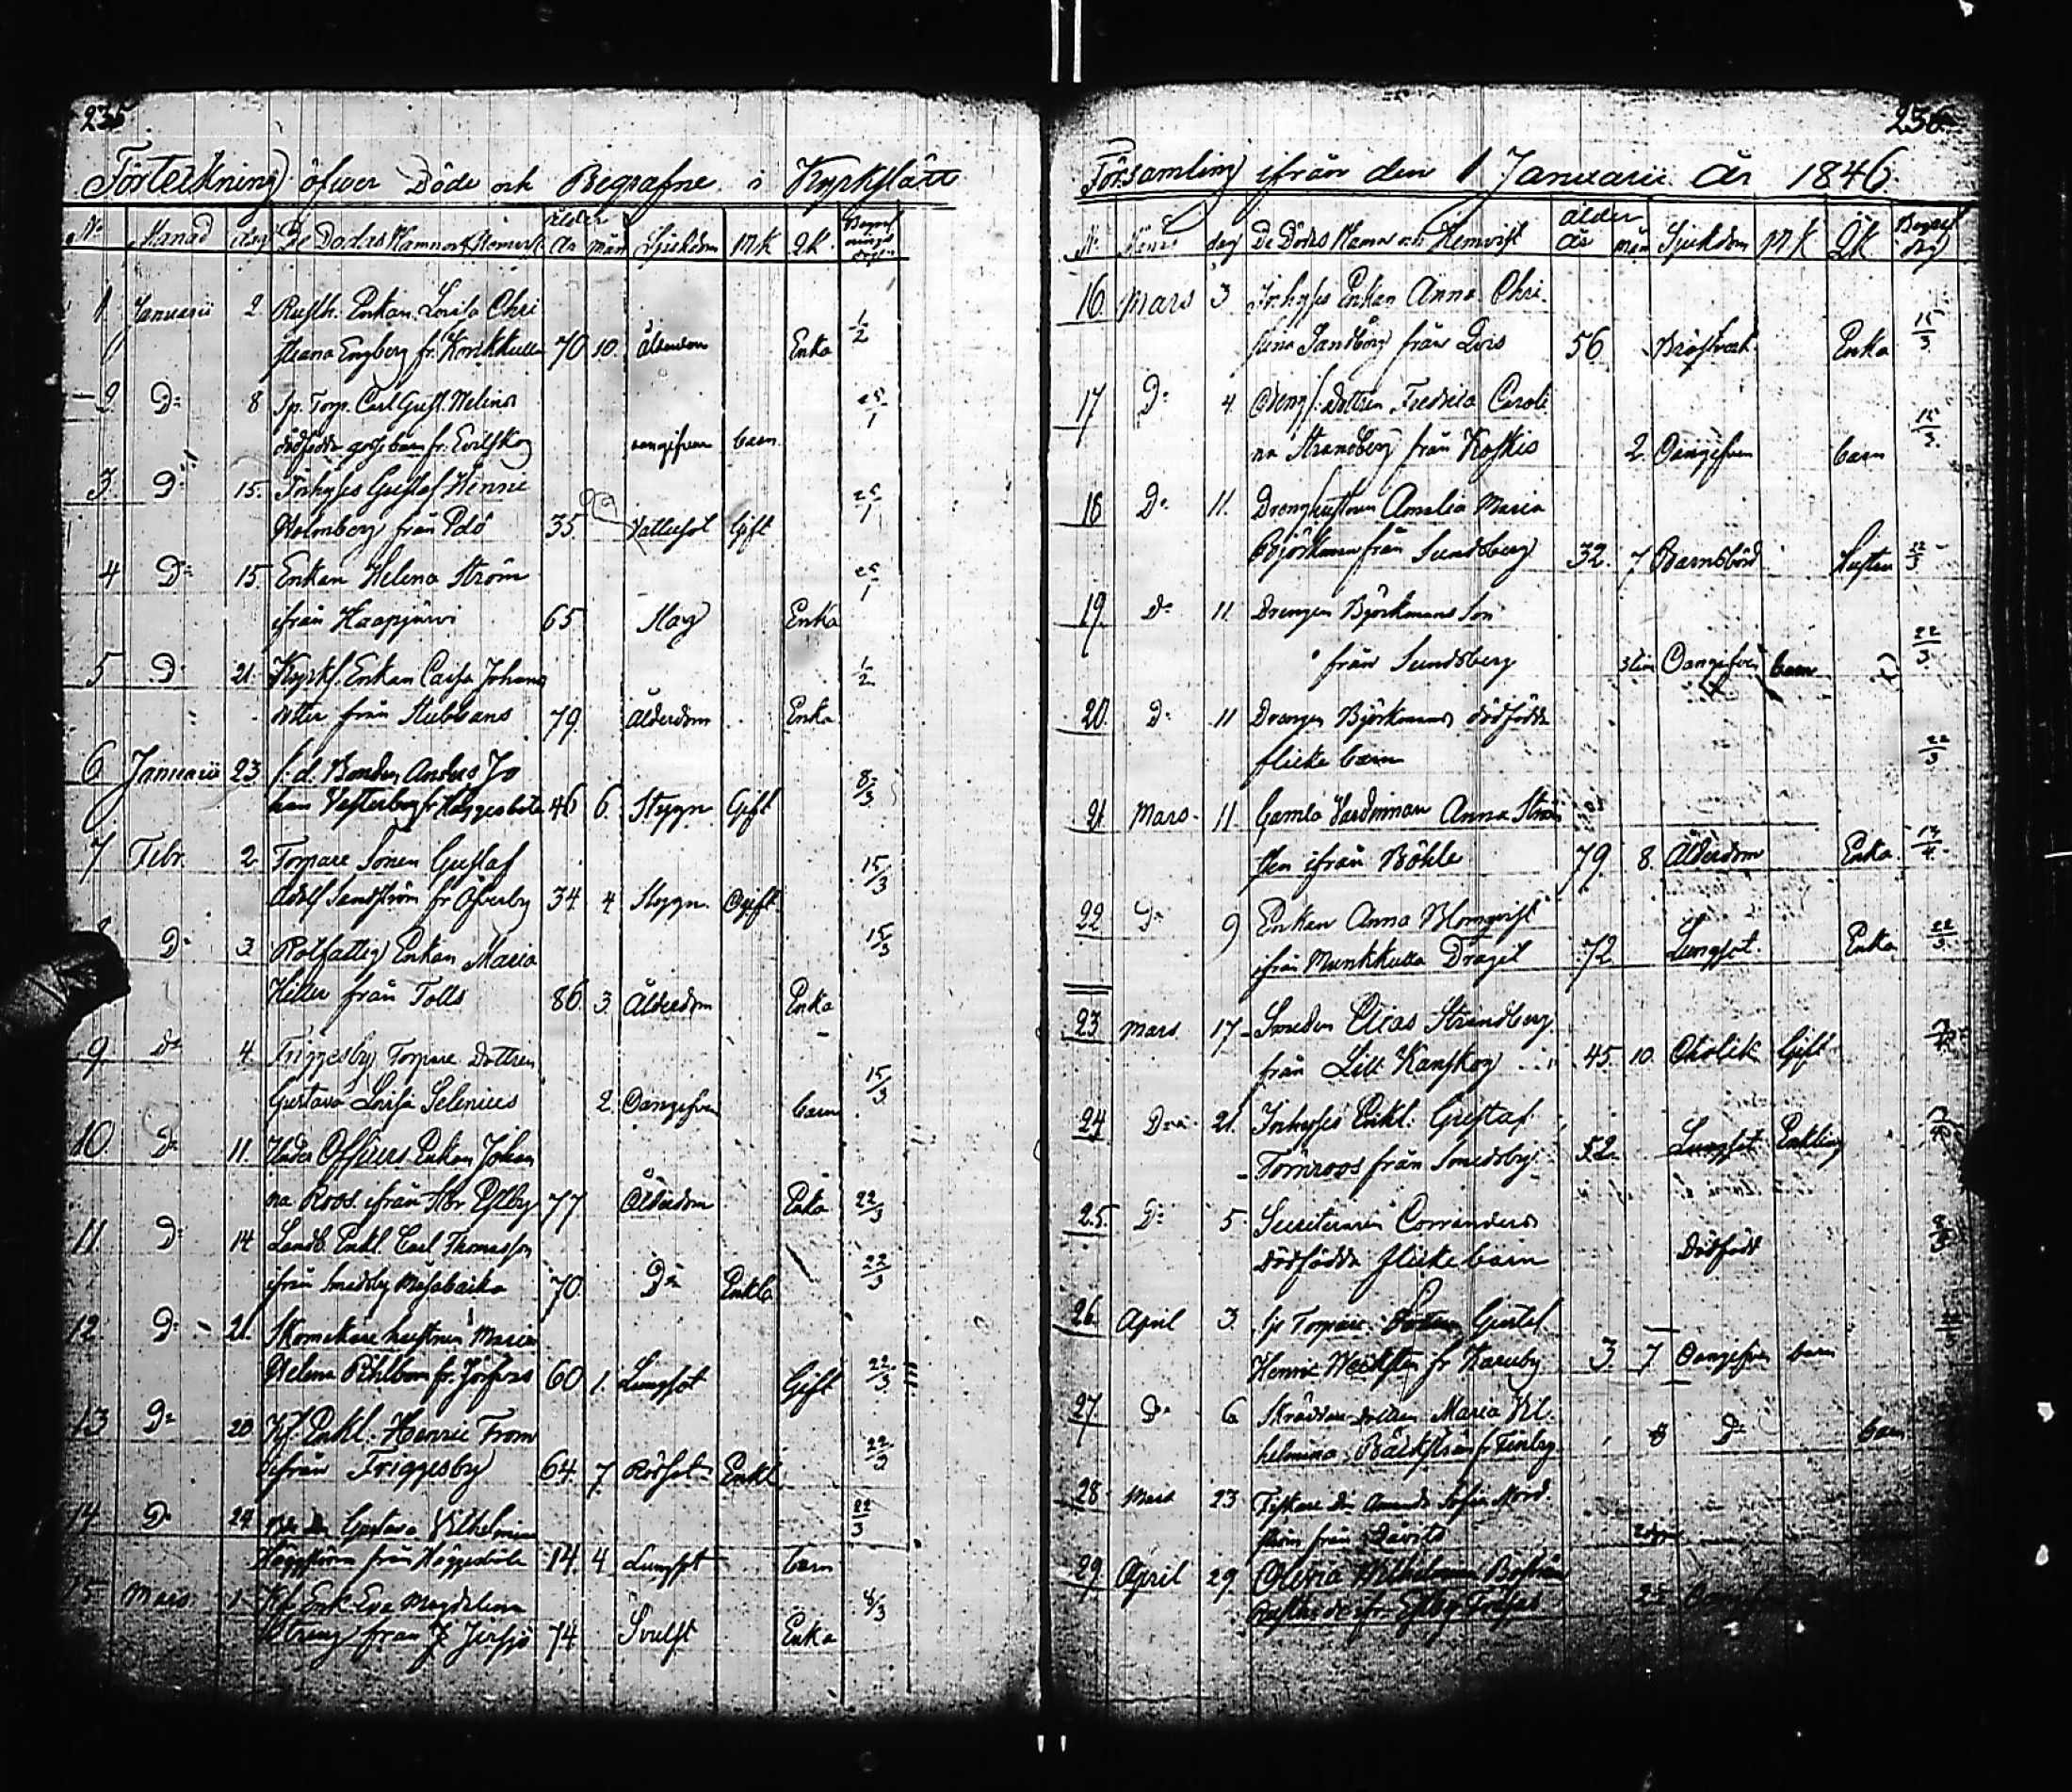 235
Förteckning öfwer Döde och Begrafne i Kyrkslätt
No Manad dag De Dödas Namn och Hemvist ålder år mån Sjukdom M.K Q.K. Begrafnings dag
1 Januarii 2 Rusth. Enkan Lovisa Chri
stiana Engberg fr. 70 10. Ålderdom Enka 1/2
2 Do 8 Sp. Torp. Carl Gust. Melins
dödfödda gosse barn fr. Evitskog oangifven barn 25/1
3. Do 15. Inhyses Gustaf Henric
Holmberg från 35. Vattusot Gift 25/1
4 Do 15. Enkan Helena Ström
ifrån Haapjärvi 65 Enka 25/1
5 Do 21. Kyrkf. Enkan Caisa Johans
dotter från Stubbans 79. Ålderdom Enka 1/2
6 Januarii 23 f.d. Bonden Anders Jo
han Vesterberg fr. Häggesböle 46 6. Styggn Gift 8/3
7 Febr. 2 Torpare Sonen Gustaf
Adolf Sandström fr Öfverby 34 4 Styggn. Ogift. 15/3
8 Do 3. Rotfattig Enkan Maria
Hiller från Tolls 86. 3. Ålderdom Enka 15/3
9. Do 4. Friggesby Torpare Dottren
Gustava Lovisa Selenius 2. Oangifven barn 15/3
10 Do 11. Under Officers Enkan Johan
na Roos ifrån Stor Esbby 77 Ålderdom Enka 22/3
11 Do 14 Landb. Enkl. Carl Thomasson
ifrån Smedsby 70. Do Enkl. 22/3
12. Do 21. Skomakare hustrun Maria
Helena fr. Jorfvas 60 1. Lungsot Gift 22/3
13 Do 20 Enkl. Henric From
ifrån Friggesby 64. 7 Rödsot Enkl 22/3
14 Do 24 Gustava Vilhelmina
Häggström från Häggesböle 14. 4 Lungsot barn 22/3
15 Mars 1. Enk. Eva Magdalena
från 74 Svulst Enka 4/3
236
Församling ifrån den 1 Januarii år 1846.
No Månad dag De Dödes Namn och Hemvist ålder år mån Sjukdom M.K Q.K Begraf dag
16 Mars 3 Inhyses Enkan Anna Chri
stina Sandberg från 56 Enka 15/3
17 Do 4. Drengs. Dottren Fredrica Caroli
na Strandberg från Koskis 2. Oangifven barn 15/3
18 Do 11. Dreng hustrun Amalia Maria
Björkman från Sundsberg 32. 7 Barnsbörd Hustru 22/3
19. Do 11 Drengen Björkmans Son
från Sundsberg 3 tim Oangifven barn 22/3
20. Do 11 Drengen Björkmans dödfödda
flicke barn 22/3
21 Mars 11 Gamla Värdinnan Anna
ifrån Böhle 79 8. Ålderdom Enka 13/4
22 Do 9 Enkan Anna Blomqvist
ifrån Munkkulla Dragil 72 Lungsot. Enka 22/3
23 Mars 17 Smeden Elias Strandberg
från Lill Kanskog 45. 10. Cholik Gift
24 Do 21. Inhyses Enkl. Gustaf
Törnroos från Smedsby 52. Lungsot Enkling
25. Do 5. Secreterare
dödfödda flickebarn Dödfödt
26 April 3. Sp Torpare Gustaf
Henric fr Karuby 3. 7 Oangifven barn
27 Do 6 Skräddare dottren Maria Vil
helmina Bäckström fr Finby. 8 Do barn
28 Mars 23 Fiskare Amanda Sofia Nord
ström från
29 April 29 Olivia Wilhelmina